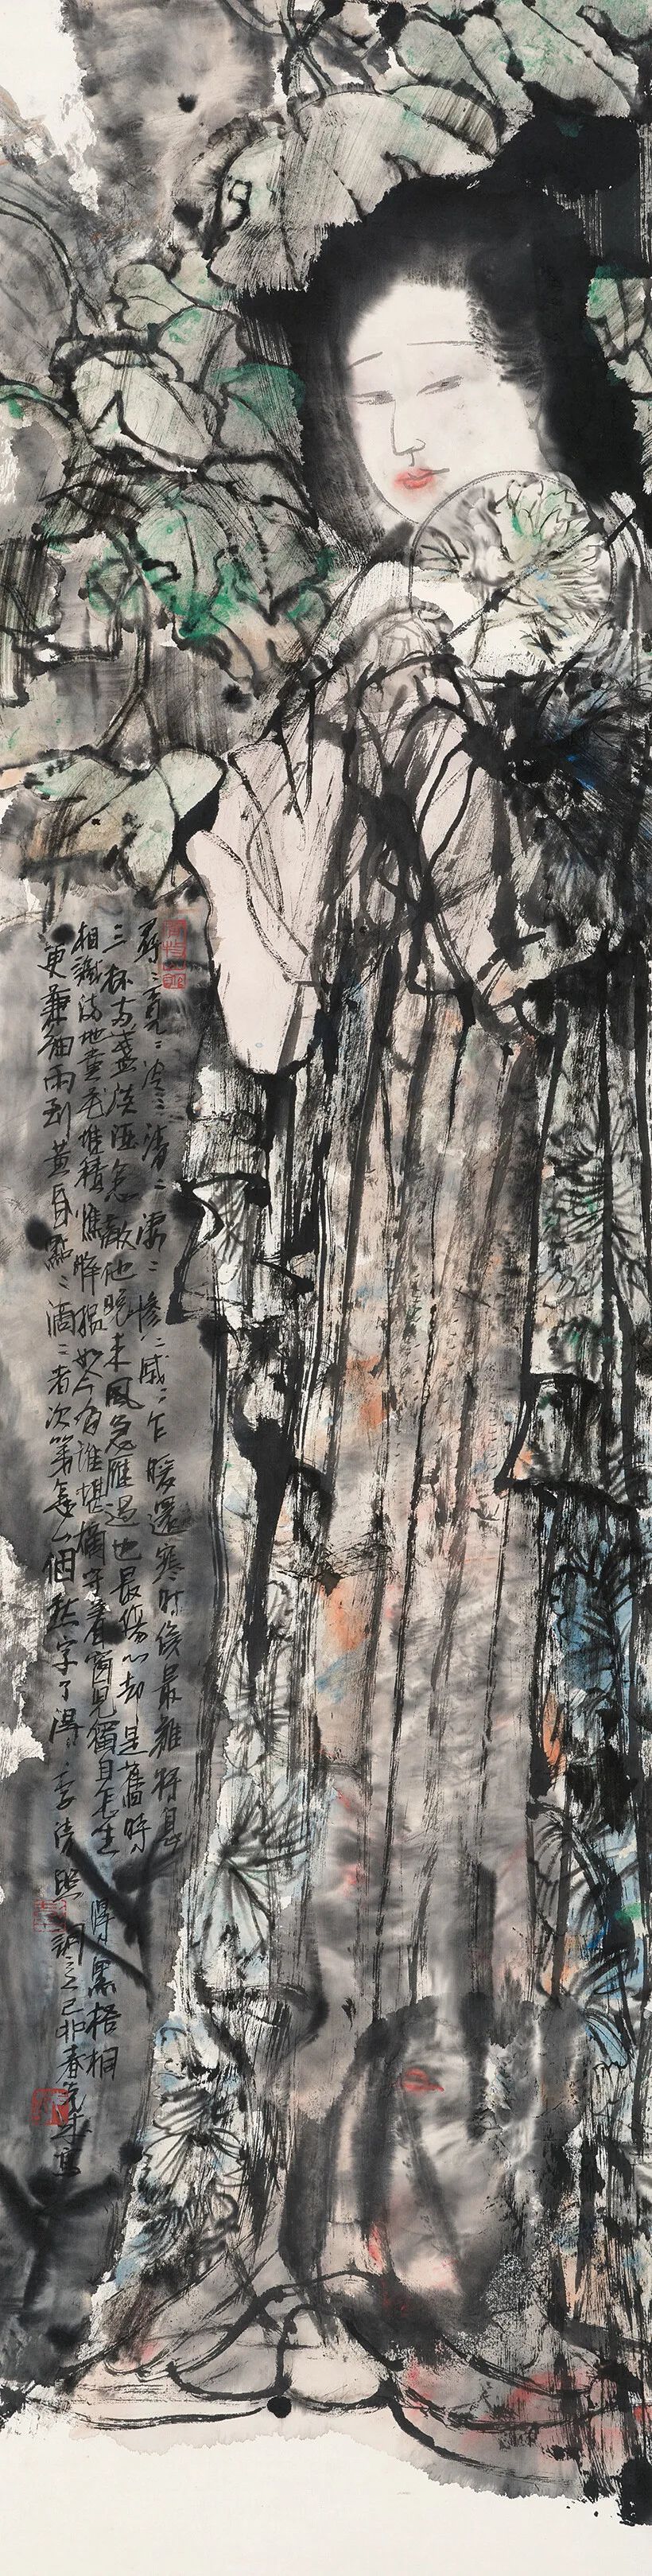 尋〻覓〻冷〻清〻凄〻慘〻戚〻乍暖還寒時候最難將息
三杯兩盞淡酒怎敵他晚來風急雁過也最傷心却是舊時
相識滿地黄花堆積憔悴損如今有誰堪摘守着窗兒獨自怎生得黑梧桐
更兼細雨到黄昏點〻滴〻者次第怎一個愁字了得 李清照詞 己卯春 寫